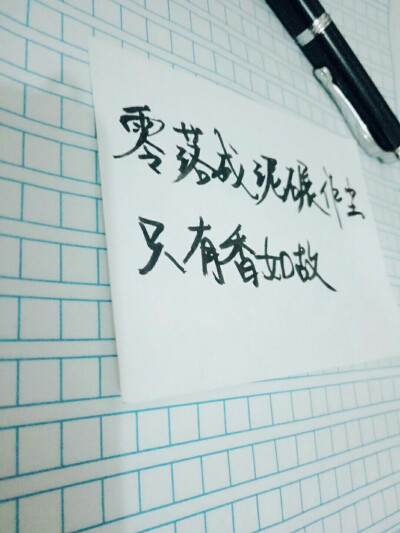 零落成泥碾作尘
只有香如故